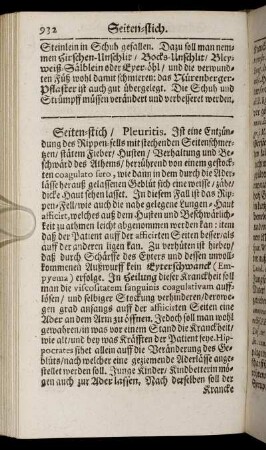 932 Seiten-stich.
Steinlein in Schuh gefallen. Dazu soll man nem-
men Hirschen-Unschlit/ Bocks-Unschlit/ Bley-
weiß-Sälblein oder Eyer-öhl/ und die verwund-
ten Füß wohl damit schmieren: das Nürenberger-
Pflaster ist auch gut übergelegt. Die Schuh und
Strümpff müssen verändert und verbessert werden.
Seiten-stich / Pleuritis. Ist eine Entzün-
dung des Rippen-fells mit stechenden Seitenschmer-
tzen/ stätem Fieber/ Husten/ Verhaltung und Be-
schwärd des Athems/ herrührend von einem gestock-
ten coagulato sero, wie dann in der durch die Ader-
lässe herauß gelassenen Geblüt sich eine weisse/ zähe/
dicke Haut sehen lasset. In diesem Fall ist das Rip-
pen-Fell/ wie auch die nahe gelegene Lungen-Haut
afficiret, welches auß dem Husten und Beschwärlich-
keit zu athmen leicht abgenommen werden kan: item
daß der Patient auff der afficirten Seiten besser als
auff der anderen ligen kan. Zu verhüten ist hiebey/
daß durch Schärffe des Eyters und dessen unvoll-
kommenen Außwurff kein Eyter-Schwand (Em-
pyema) erfolge. In Heilung dieser Kranckheit soll
man die viscositatem sanguinis coagulativam auff-
lösen/ und selbiger Steckung verhinderen/ derowe-
gen grad anfangs auff der afficirten Seiten eine
Ader an dem Arm zu öffnen. Jedoch soll man wohl
gewahren/ in was vor einem Stand die Kranckheit/
wie alt/ und bey was Kräfften der Patient seye. Hip-
pocrates sihet allein auff die Veränderung des Ge-
blüts/ nach welcher eine geziemende Aderlässe ange-
stellet werden soll. Junge Kinder/ Kindbetterin mö-
gen auch zur Ader lassen. Nach derselben soll der
Krancke